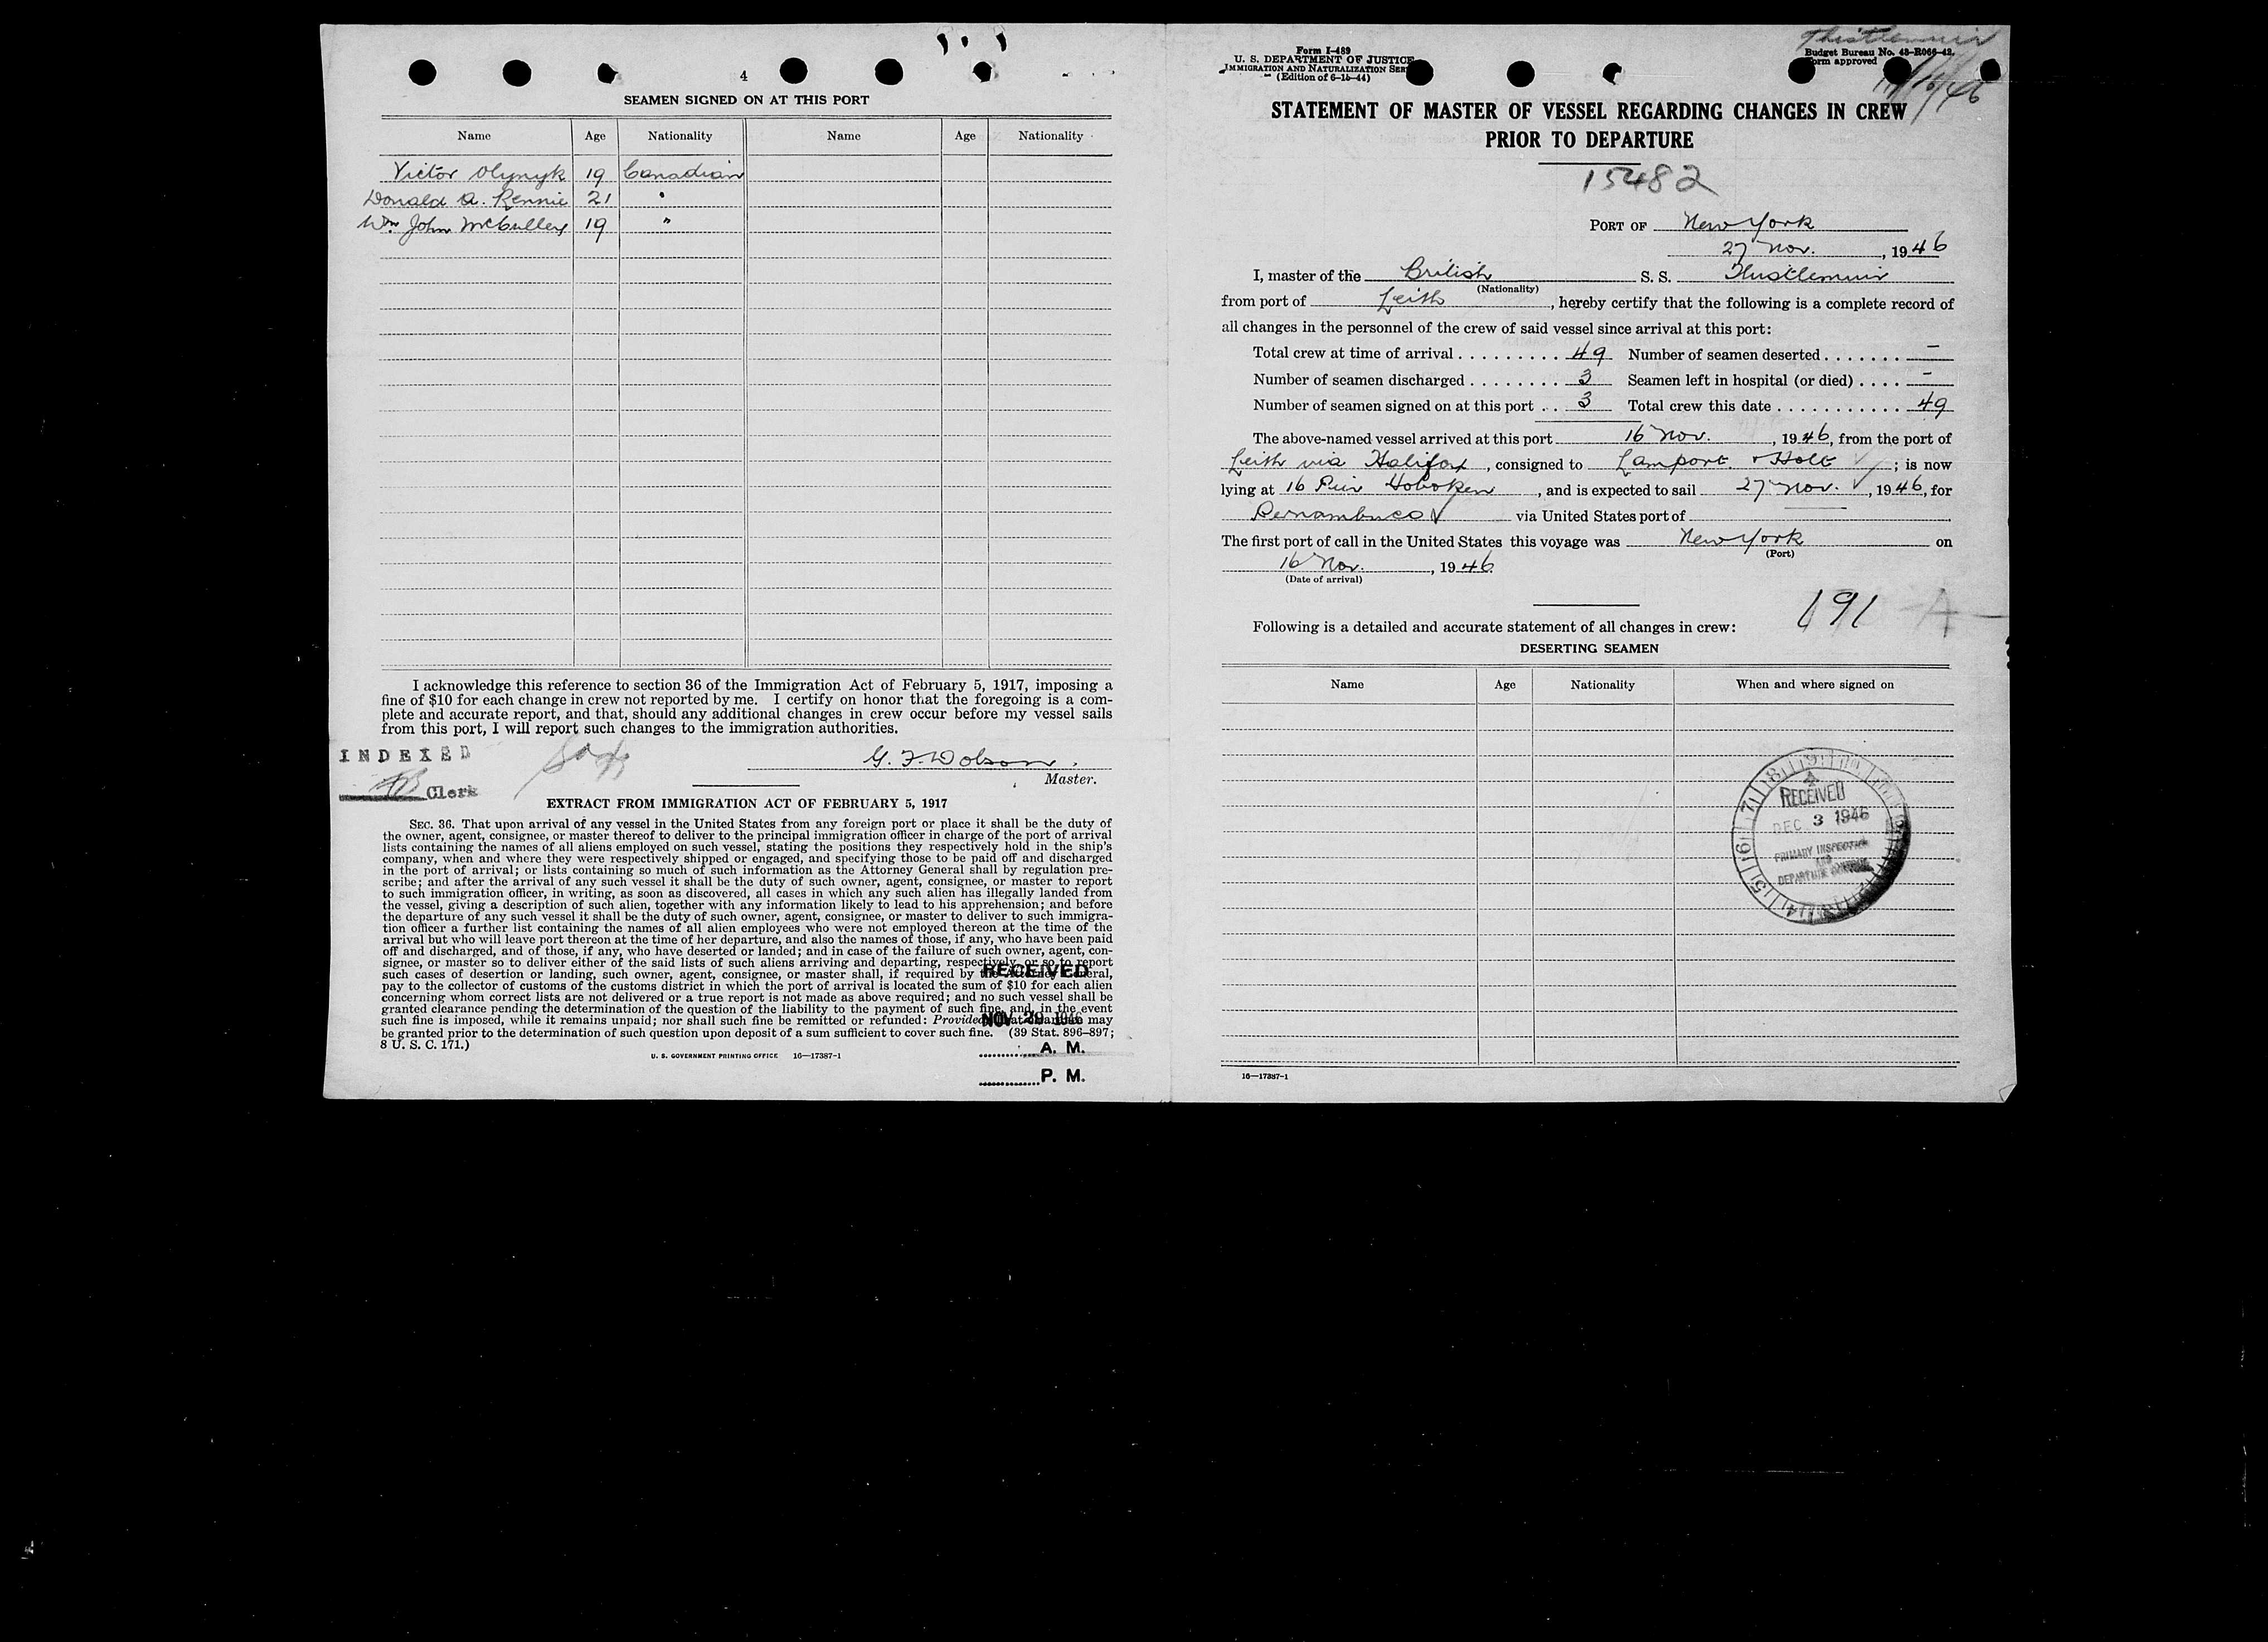 4
SEAMEN SIGNED ON AT THIS PORT
Name Age Nationality Name Age Nationality
Victor Olynyk 19 Canadian
Donald A. Rennie 21 "
Wm John McCulley 19 "
I acknowledge this reference to section 36 of the Immigration Act of February 5, 1917, imposing a
fine of $10 for each change in crew not reported by me. I certify on honor that the foregoing is a com-
plete and accurate report, and that, should any additional changes in crew occur before my vessel sails
from this port, I will report such changes to the immigration authorities.
INDEXED
Clerk
G. F. Dobson.
Master.
EXTRACT FROM IMMIGRATION ACT OF FEBRUARY 5, 1917
SEC. 36. That upon arrival of any vessel in the United States from any foreign port or place it shall be the duty of
the owner, agent, consignee, or master thereof to deliver to the principal immigration officer in charge of the port of arrival
lists containing the names of all aliens employed on such vessel, stating the positions they respectively hold in the ship's
company, when and where they were respectively shipped or engaged, and specifying those to be paid off and discharged
in the port of arrival; or lists containing so much of such information as the Attorney General shall by regulation pre-
scribe; and after the arrival of any such vessel it shall be the duty of such owner, agent, consignee, or master to report
to such immigration officer, in writing, as soon as discovered, all cases in which any such alien has illegally landed from
the vessel, giving a description of such alien, together with any information likely to lead to his apprehension; and before
the departure of any such vessel it shall be the duty of such owner, agent, consignee, or master to deliver to such immigra-
tion officer a further list containing the names of all alien employees who were not employed thereon at the time of the
arrival but who will leave port thereon at the time of her departure, and also the names of those, if any, who have been paid
off and discharged, and of those, if any, who have deserted or landed; and in case of the failure of such owner, agent, con-
signee, or master so to deliver either of the said lists of such aliens arriving and departing, respectively, or so to report
such cases of desertion or landing, such owner, agent, consignee, or master shall, if required by the Attorney General,
pay to the collector of customs of the customs district in which the port of arrival is located the sum of $10 for each alien
concerning whom correct lists are not delivered or a true report is not made as above required; and no such vessel shall be
granted clearance pending the determination of the question of the liability to the payment of such fine, and, in the event
such fine is imposed, while it remains unpaid; nor shall such fine be remitted or refunded: Provided, That clearance may
be granted prior to the determination of such question upon deposit of a sum sufficient to cover such fine. (39 Stat. 896–897;
8 U. S. C. 171.)
U. S. GOVERNMENT PRINTING OFFICE 16—17387-1
RECEIVED
NOV 29 1946
A. M.
P. M.
Thistlemuir
11/16/46
Form I-489
U. S. DEPARTMENT OF JUSTICE
IMMIGRATION AND NATURALIZATION SER
(Edition of 6-15-44)
Budget Bureau No. 43-R066-42.
Form approved
STATEMENT OF MASTER OF VESSEL REGARDING CHANGES IN CREW
PRIOR TO DEPARTURE
15482
PORT OF New York
27 Nov., 1946
I, master of the British S. S. Thistlemuir
(Nationality)
from port of Leith, hereby certify that the following is a complete record of
all changes in the personnel of the crew of said vessel since arrival at this port:
Total crew at time of arrival 49 Number of seamen deserted –
Number of seamen discharged 3 Seamen left in hospital (or died) –
Number of seamen signed on at this port 3 Total crew this date 49
The above-named vessel arrived at this port 16 Nov., 1946, from the port of
Leith via Halifax, consigned to Lamport & Holt; is now
lying at 16 Peir Hoboken, and is expected to sail 27 Nov., 1946, for
Pernambuco via United States port of
The first port of call in the United States this voyage was New York on
(Port)
16 Nov., 1946
(Date of arrival)
191
Following is a detailed and accurate statement of all changes in crew:
DESERTING SEAMEN
Name Age Nationality When and where signed on
RECEIVED
DEC 3 1946
PRIMARY INSPECTION
AND
DEPARTURE CONTROL
16—17387-1